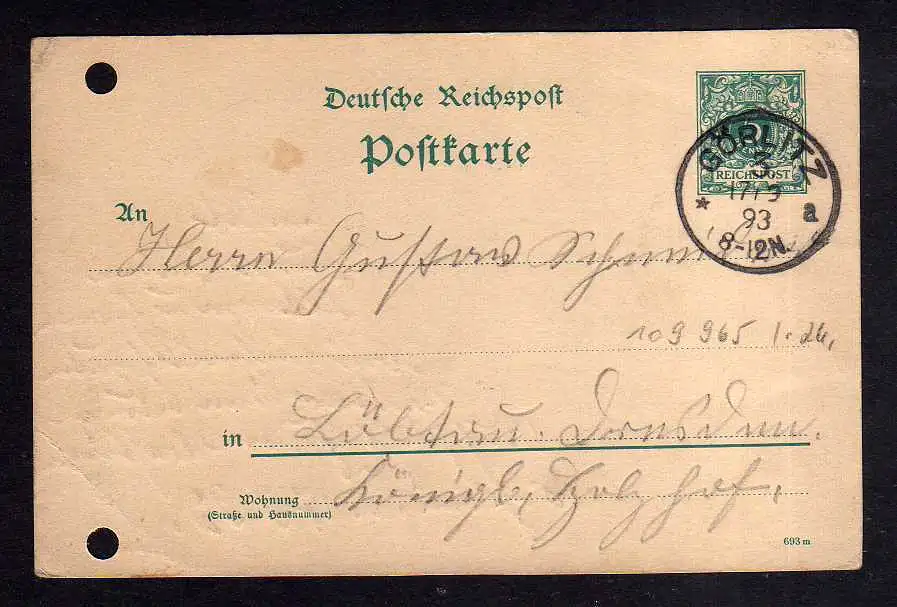 Deutsche Reichspost
Postkarte
5
REICHSPOST
GÖRLITZ
* a
17/3
93
8-12N.
An
Herrn Gustav
109 965 1.26,
in Löbtau. Dresden.
Wohnung Königl. Holzhof,
(Straße und Hausnummer)
693 m